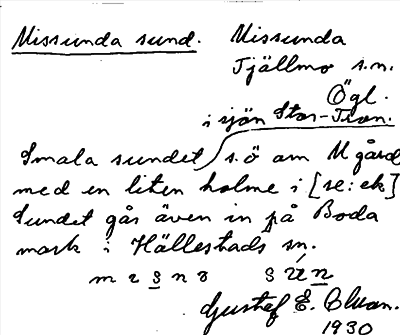 Missunda sund. Missunda
Tjällmo s.n.
Ögl.
i sjön Stor-Tron.
Smala sundet s.ö om M gård
med en liten holme i [se: ek]
Sundet går även in på Boda
mark i Hällestads sn.
Gustaf E. 
1930